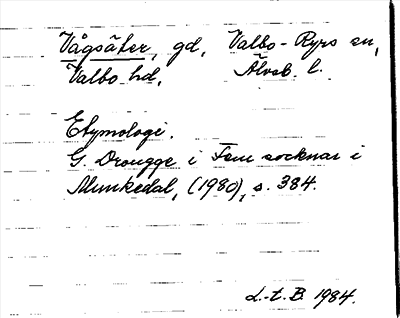 Vågsäter, gd, Valbo-Ryrs sn,
Valbo hd, Älvsb. l.
Etymologi.
G. Drougge i Fem socknar i
Munkedal, (1980), s. 384.
L-t. B. 1984.